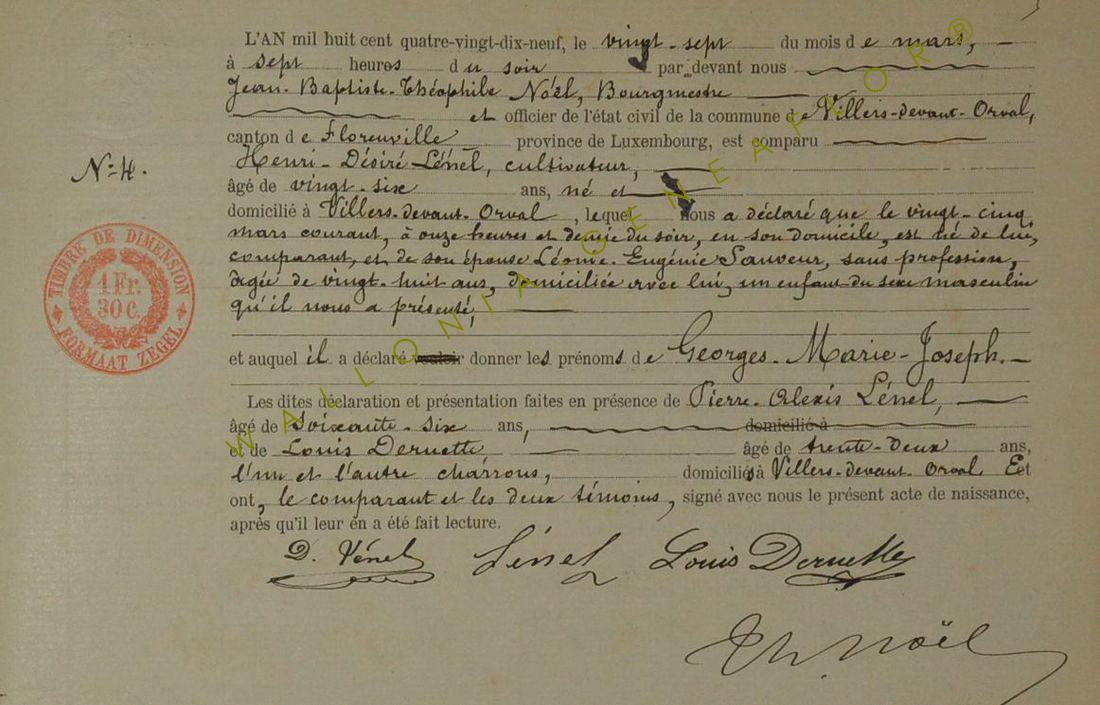 L'AN mil huit cent quatre-vingt-dix-neuf, le vingt-sept du mois de mars,
à sept heures du soir par devant nous
Jean-Baptiste-Théophile Noël, Bourgmestre
et officier de l'état civil de la commune de Villers-devant-Orval,
canton de Florenville province de Luxembourg, est comparu
Henri-Désiré Lénel, cultivateur,
N° 4.
âgé de vingt-six ans, né et
domicilié à Villers-devant-Orval, lequel nous a déclaré que le vingt-cinq
mars courant, à onze heures et demie du soir, en son domicile, est né de lui,
comparant, et de son épouse Léonie-Eugénie Sauveur, sans profession,
âgée de vingt-huit ans, domiciliée avec lui, un enfant du sexe masculin
qu'il nous a présenté,
TIMBRE DE DIMENSION
1 Fr.
30 C.
FORMAAT ZEGEL
et auquel il a déclaré vouloir donner les prénoms de Georges-Marie-Joseph.
Les dites déclaration et présentation faites en présence de Pierre-Alexis Lénel,
âgé de soixante-six ans, domicilié à
et de Louis Deruette âgé de trente-deux ans,
l'un et l'autre charrons, domiciliés à Villers-devant-Orval Et
ont, le comparant et les deux témoins, signé avec nous le présent acte de naissance,
après qu'il leur en a été fait lecture.
D. Lénel Lénel Louis Deruette
Th. Noël
WALLONIAGENEANOR®